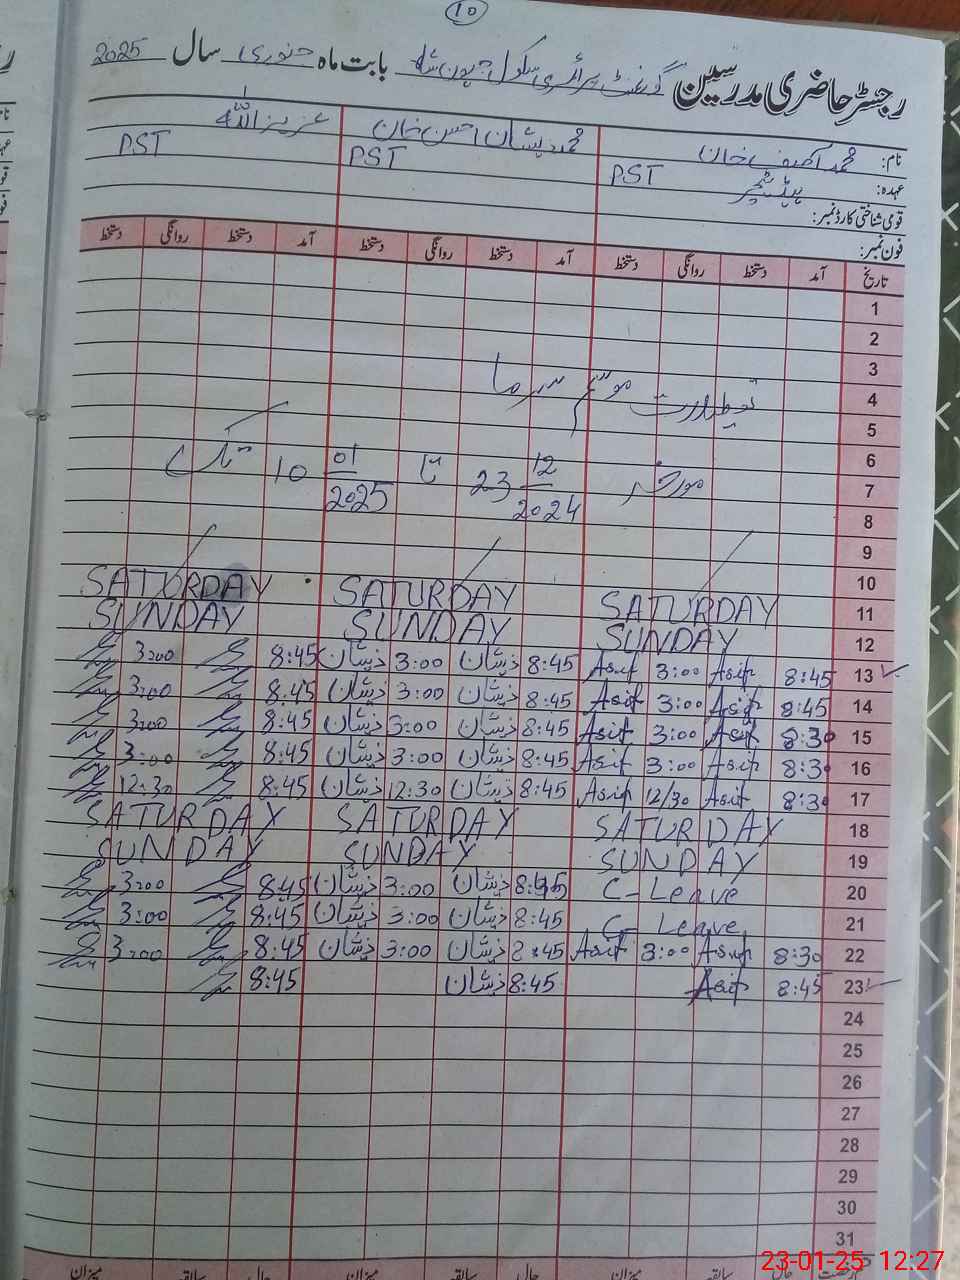 10
رجسٹر حاضری مدرسین گورنمنٹ پرائمری سکول بابت ماہ جنوری سال 2025
نام: محمد آصف خان محمد ذیشان احسن خان عزیز اللہ
عہدہ: ہیڈ ٹیچر PST PST PST
قومی شناختی کارڈ نمبر:
فون نمبر:
تاریخ آمد دستخط روانگی دستخط آمد دستخط روانگی دستخط آمد دستخط روانگی دستخط
1
2
3
4 تعطیلات موسم سرما
5
6
7 مورخہ 23 12/2024 تا 10 01/2025 تک
8
9
10
11 SATURDAY SATURDAY SATURDAY
12 SUNDAY SUNDAY SUNDAY
13 8:45 Asif 3:00 Asif 8:45 ذیشان 3:00 ذیشان 8:45 3:00
14 8:45 Asif 3:00 Asif 8:45 ذیشان 3:00 ذیشان 8:45 3:00
15 8:30 Asif 3:00 Asif 8:45 ذیشان 3:00 ذیشان 8:45 3:00
16 8:30 Asif 3:00 Asif 8:45 ذیشان 3:00 ذیشان 8:45 3:00
17 8:30 Asif 12/30 Asif 8:45 ذیشان 12:30 ذیشان 8:45 12:30
18 SATURDAY SATURDAY SATURDAY
19 SUNDAY SUNDAY SUNDAY
20 C-Leave 8:45 ذیشان 3:00 ذیشان 8:45 3:00
21 C-Leave 8:45 ذیشان 3:00 ذیشان 8:45 3:00
22 8:30 Asif 3:00 Asif 8:45 ذیشان 3:00 ذیشان 8:45 3:00
23 8:45 Asif 8:45 ذیشان 8:45
24
25
26
27
28
29
30
31
حال سابقہ میزان حال سابقہ میزان حال سابقہ میزان
23-01-25 12:27